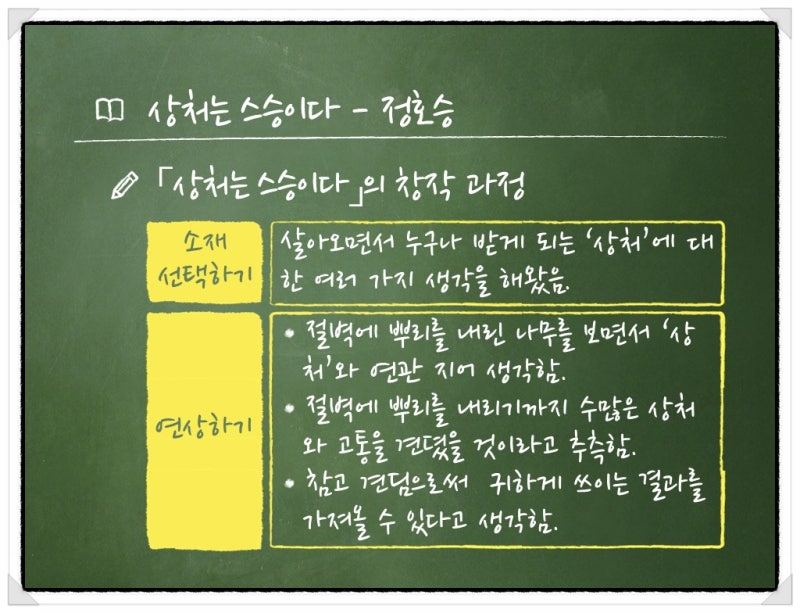 상처는 스승이다 - 정호승
「상처는 스승이다」의 창작 과정
소재
선택하기
살아오면서 누구나 받게 되는 ‘상처’에 대
한 여러 가지 생각을 해왔음.
연상하기
• 절벽에 뿌리를 내린 나무를 보면서 ‘상
처’와 연관 지어 생각함.
• 절벽에 뿌리를 내리기까지 수많은 상처
와 고통을 견뎠을 것이라고 추측함.
• 참고 견딤으로써 귀하게 쓰이는 결과를
가져올 수 있다고 생각함.